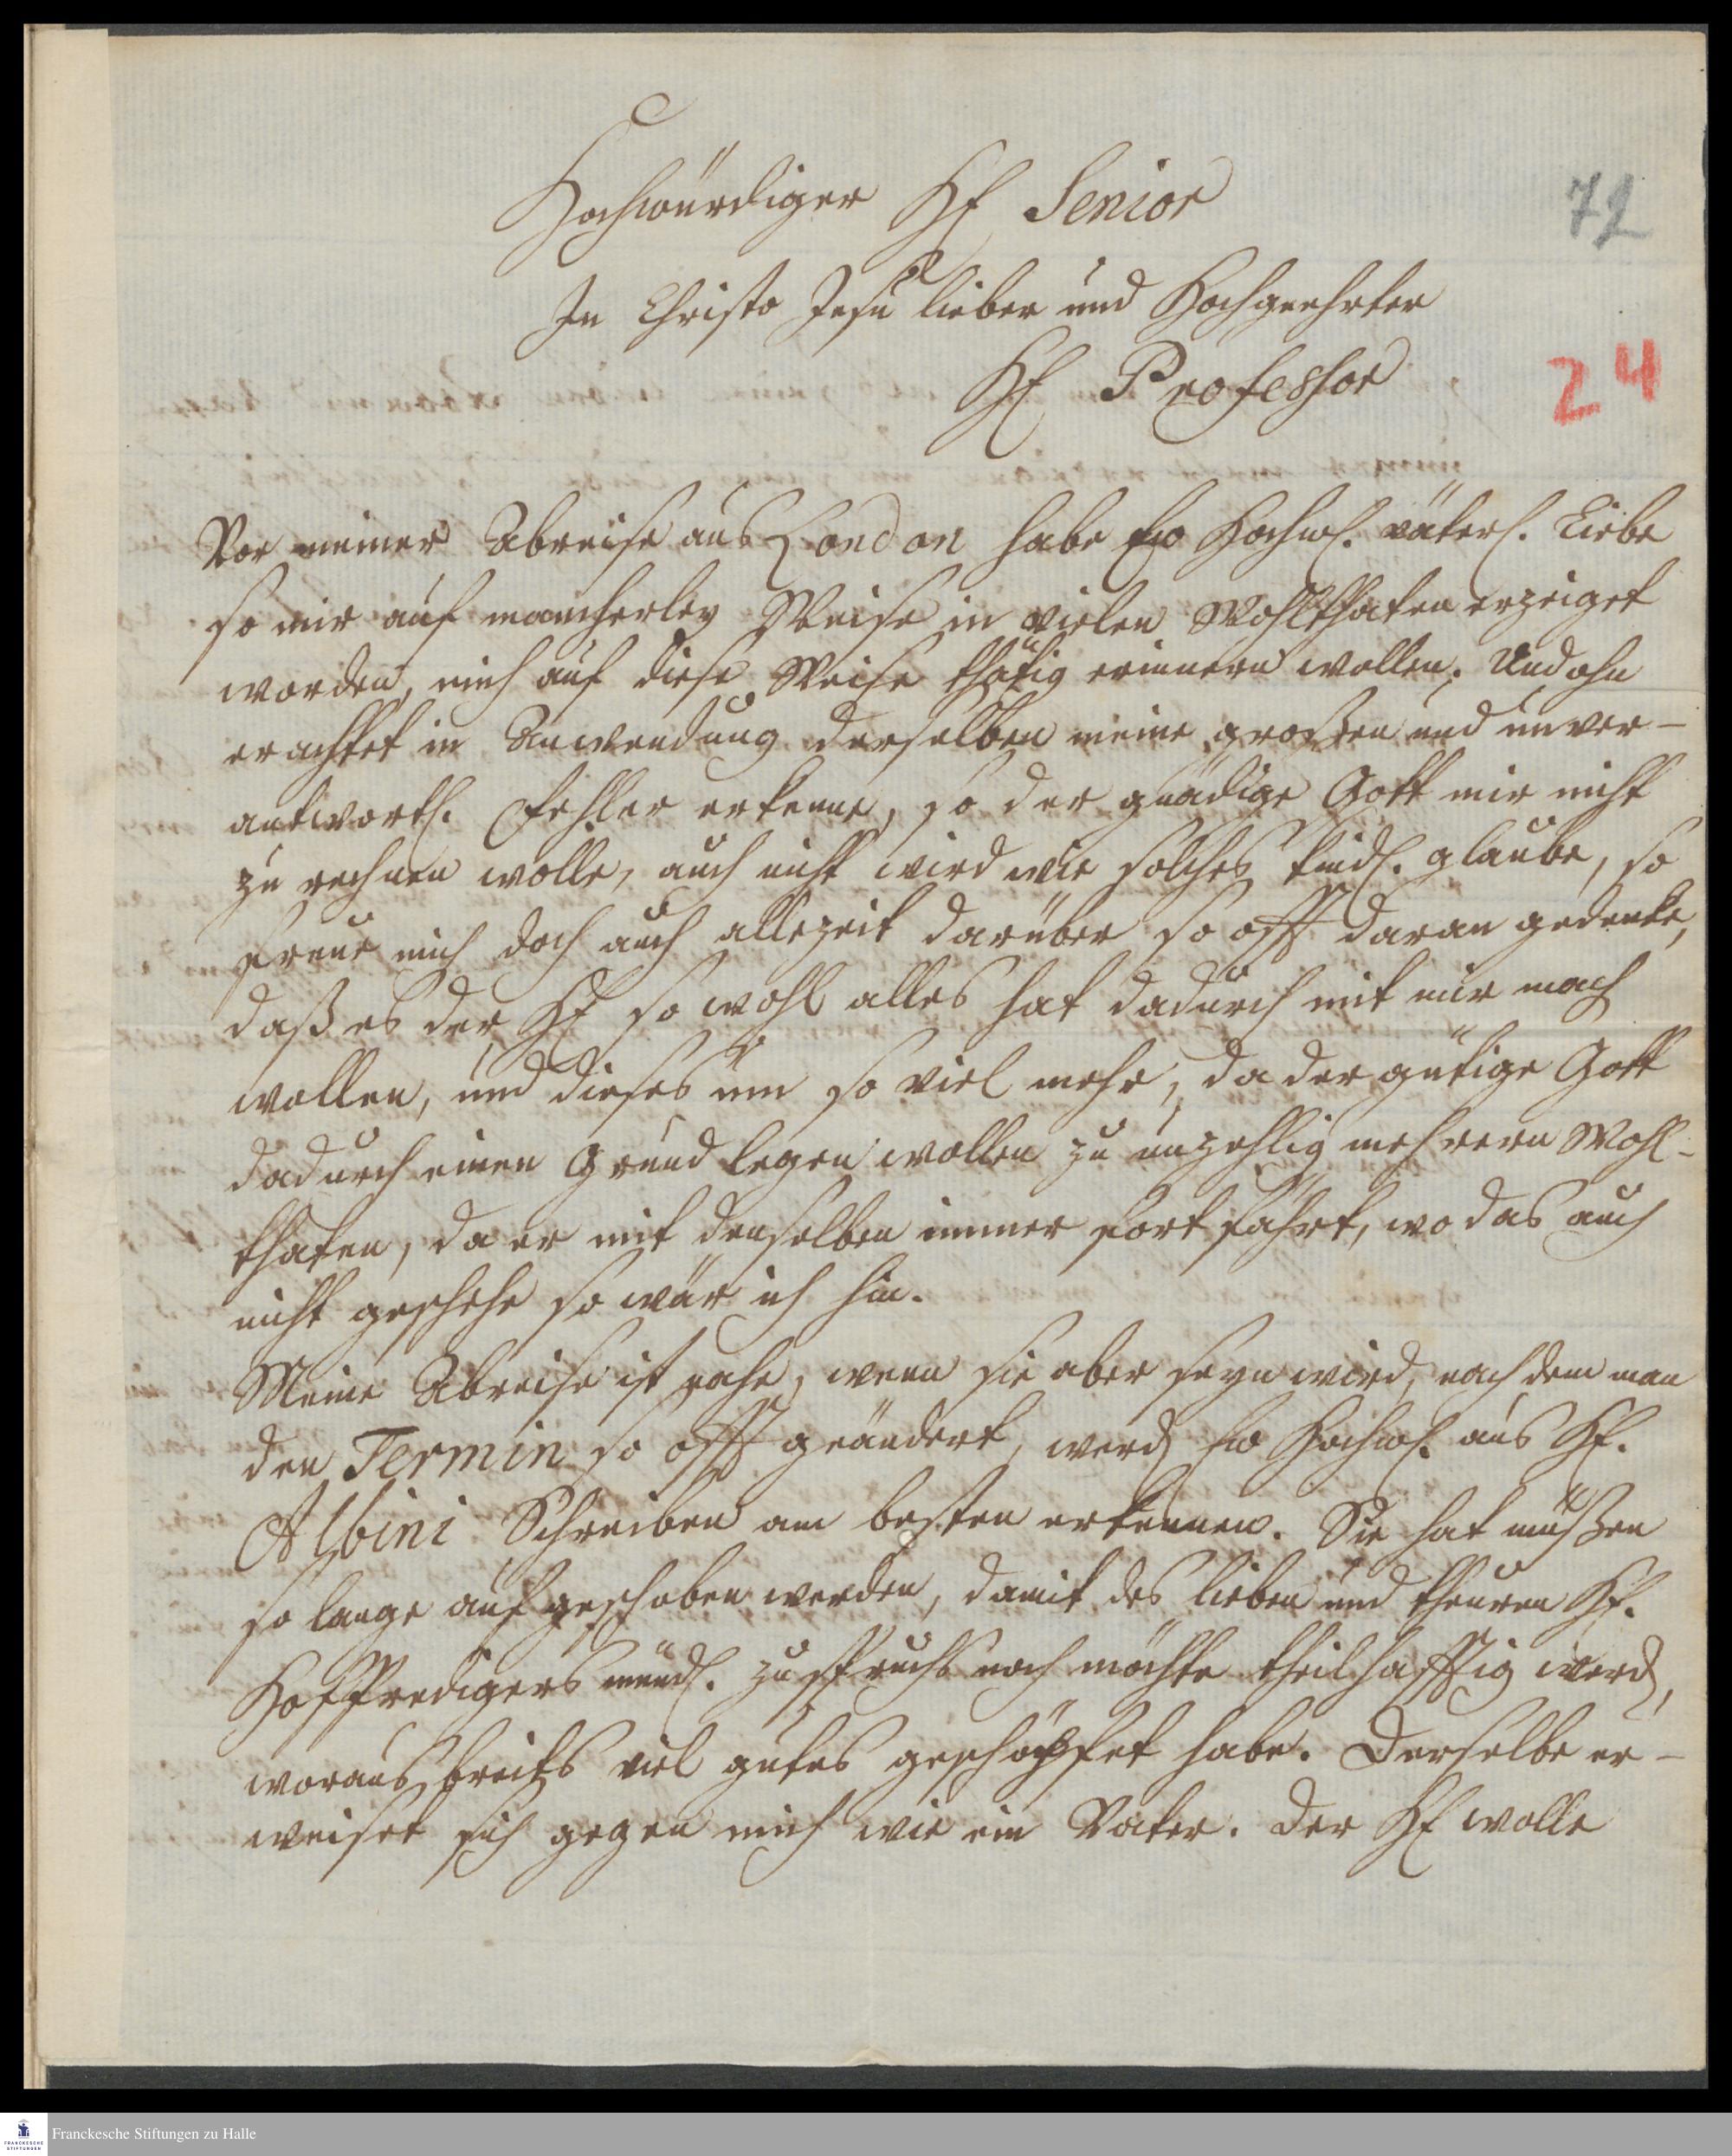 72
Hochwürdiger H. Senior
In Christo Jesu lieber und Hochgeehrter
24
H. Professor
Vor meiner Abreise aus London habe Ew Hochw. väterl. Liebe
so mir auf mancherley Weise in vielen Wohlthaten erzeiget
worden, mich auf diese Weise thätig erinnern wollen. Und ohn
erachtet in Anwendung derselben meine großen und unver-
antwortl. Fehler erkenne, so der gnädige Gott mir nicht
zu rechnen wolle, auch nicht wird wie solches kindl. glaube, so
freue mich doch auch allezeit darüber so offt daran gedenke,
daß es der H. so wohl alles hat dadurch mit mir mach
wollen, und dieses um so viel mehr, da der gütige Gott
dadurch einen Grund legen wollen zu unzehlig mehrern Wohl-
thaten, da er mit denselben immer fort fährt, wo das auch
nicht geschehe so wär ich hin.
Meine Abreise ist nahe, wenn sie aber seyn wird, nach dem man
den Termin so offt geändert, werd Ew Hochw. aus H.
Albini Schreiben am besten erkennen. Sie hat müßen
so lange aufgeschoben werden, damit des lieben und theuren H.
Hoffpredigers mündl. zuspruchs noch möchte theilhafftig werd,
woraus bereits viel gutes geschöpfet habe. Derselbe er-
weiset sich gegen mich wie ein Vater. Der H. wolle
Franckesche Stiftungen zu Halle
FRANCKESCHE
STIFTUNGEN